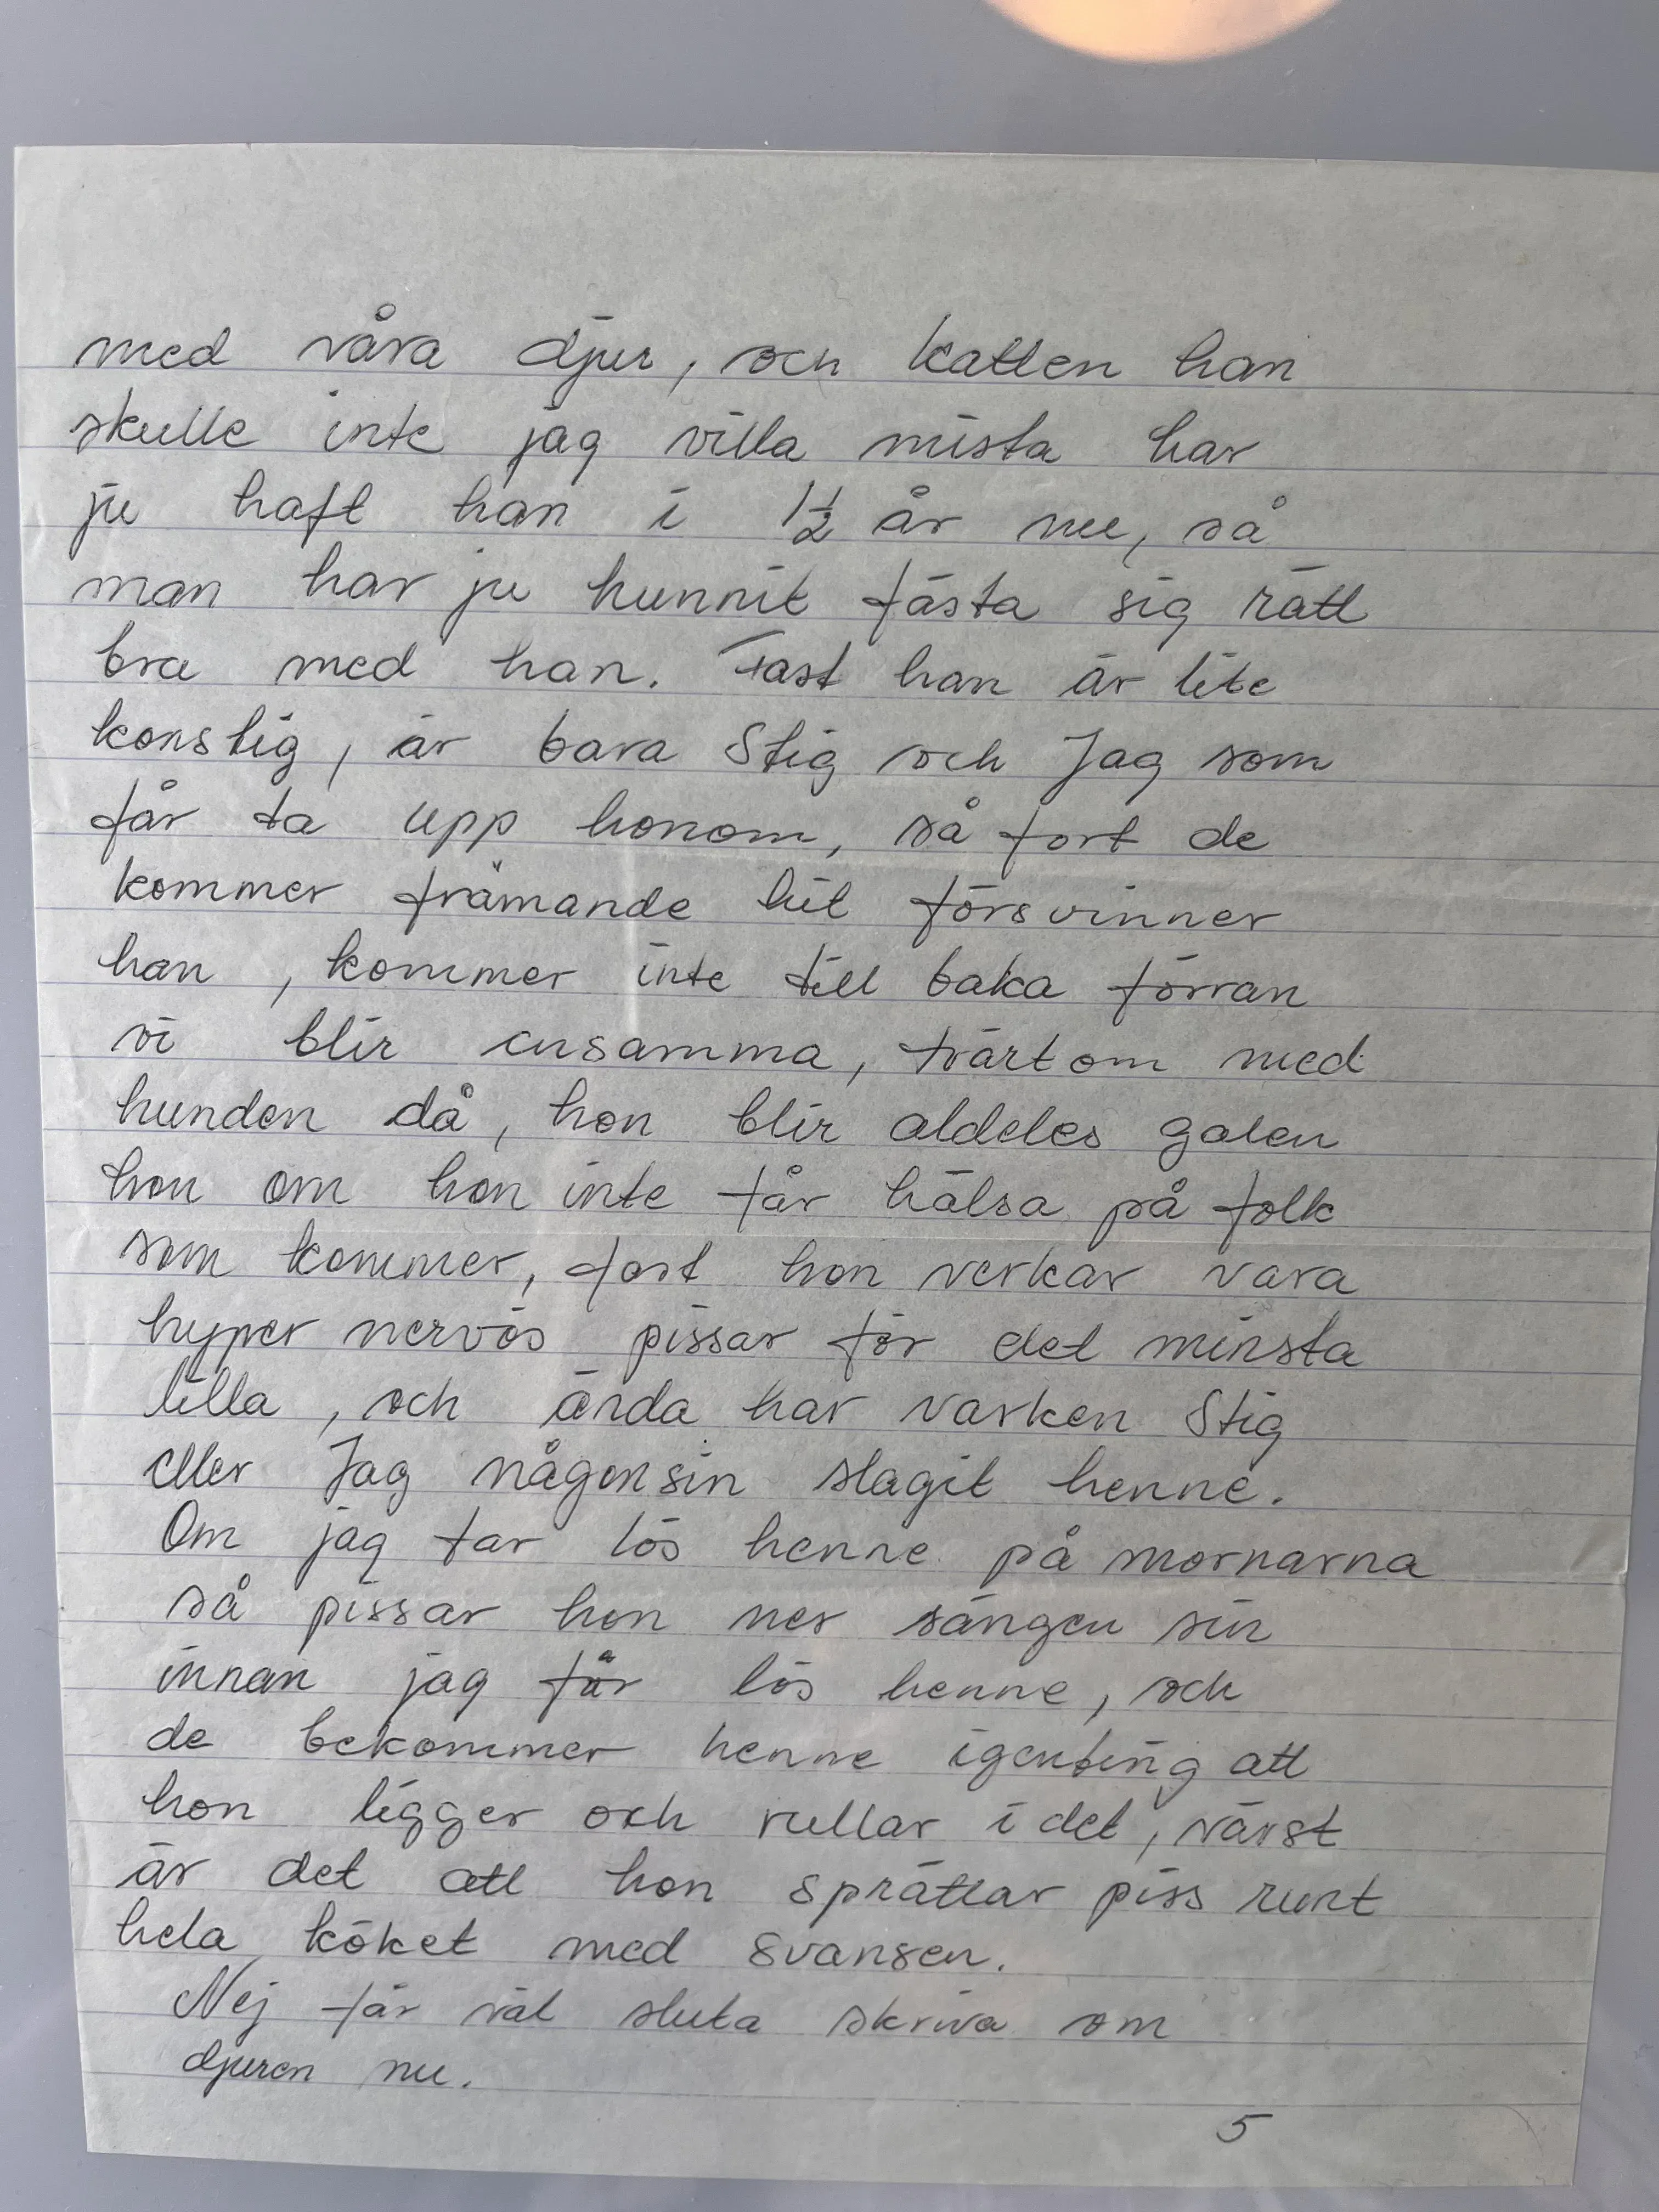 med våra djur, och katten han
skulle inte jag villa mista har
ju haft han i 1½ år nu, så
man har ju hunnit fästa sig rätt
bra med han. Fast han är lite
konstig, är bara Stig och Jag som
får ta upp honom, så fort de
kommer främande hit försvinner
han , kommer inte till baka förran
vi blir ensamma, tvärt om med
hunden då, hon blir aldeles galen
hon om hon inte får hälsa på folk
som kommer, fast hon verkar vara
hyper nervös pissar för det minsta
lilla , och ända har varken Stig
eller Jag någonsin slagit henne.
Om jag tar lös henne på mornarna
så pissar hon ner sängen sin
innan jag får lös henne, och
de bekommer henne igenting att
hon ligger och rullar i det, värst
är det att hon sprättar piss runt
hela köket med svansen.
Nej får väl sluta skriva om
djuren nu.
5